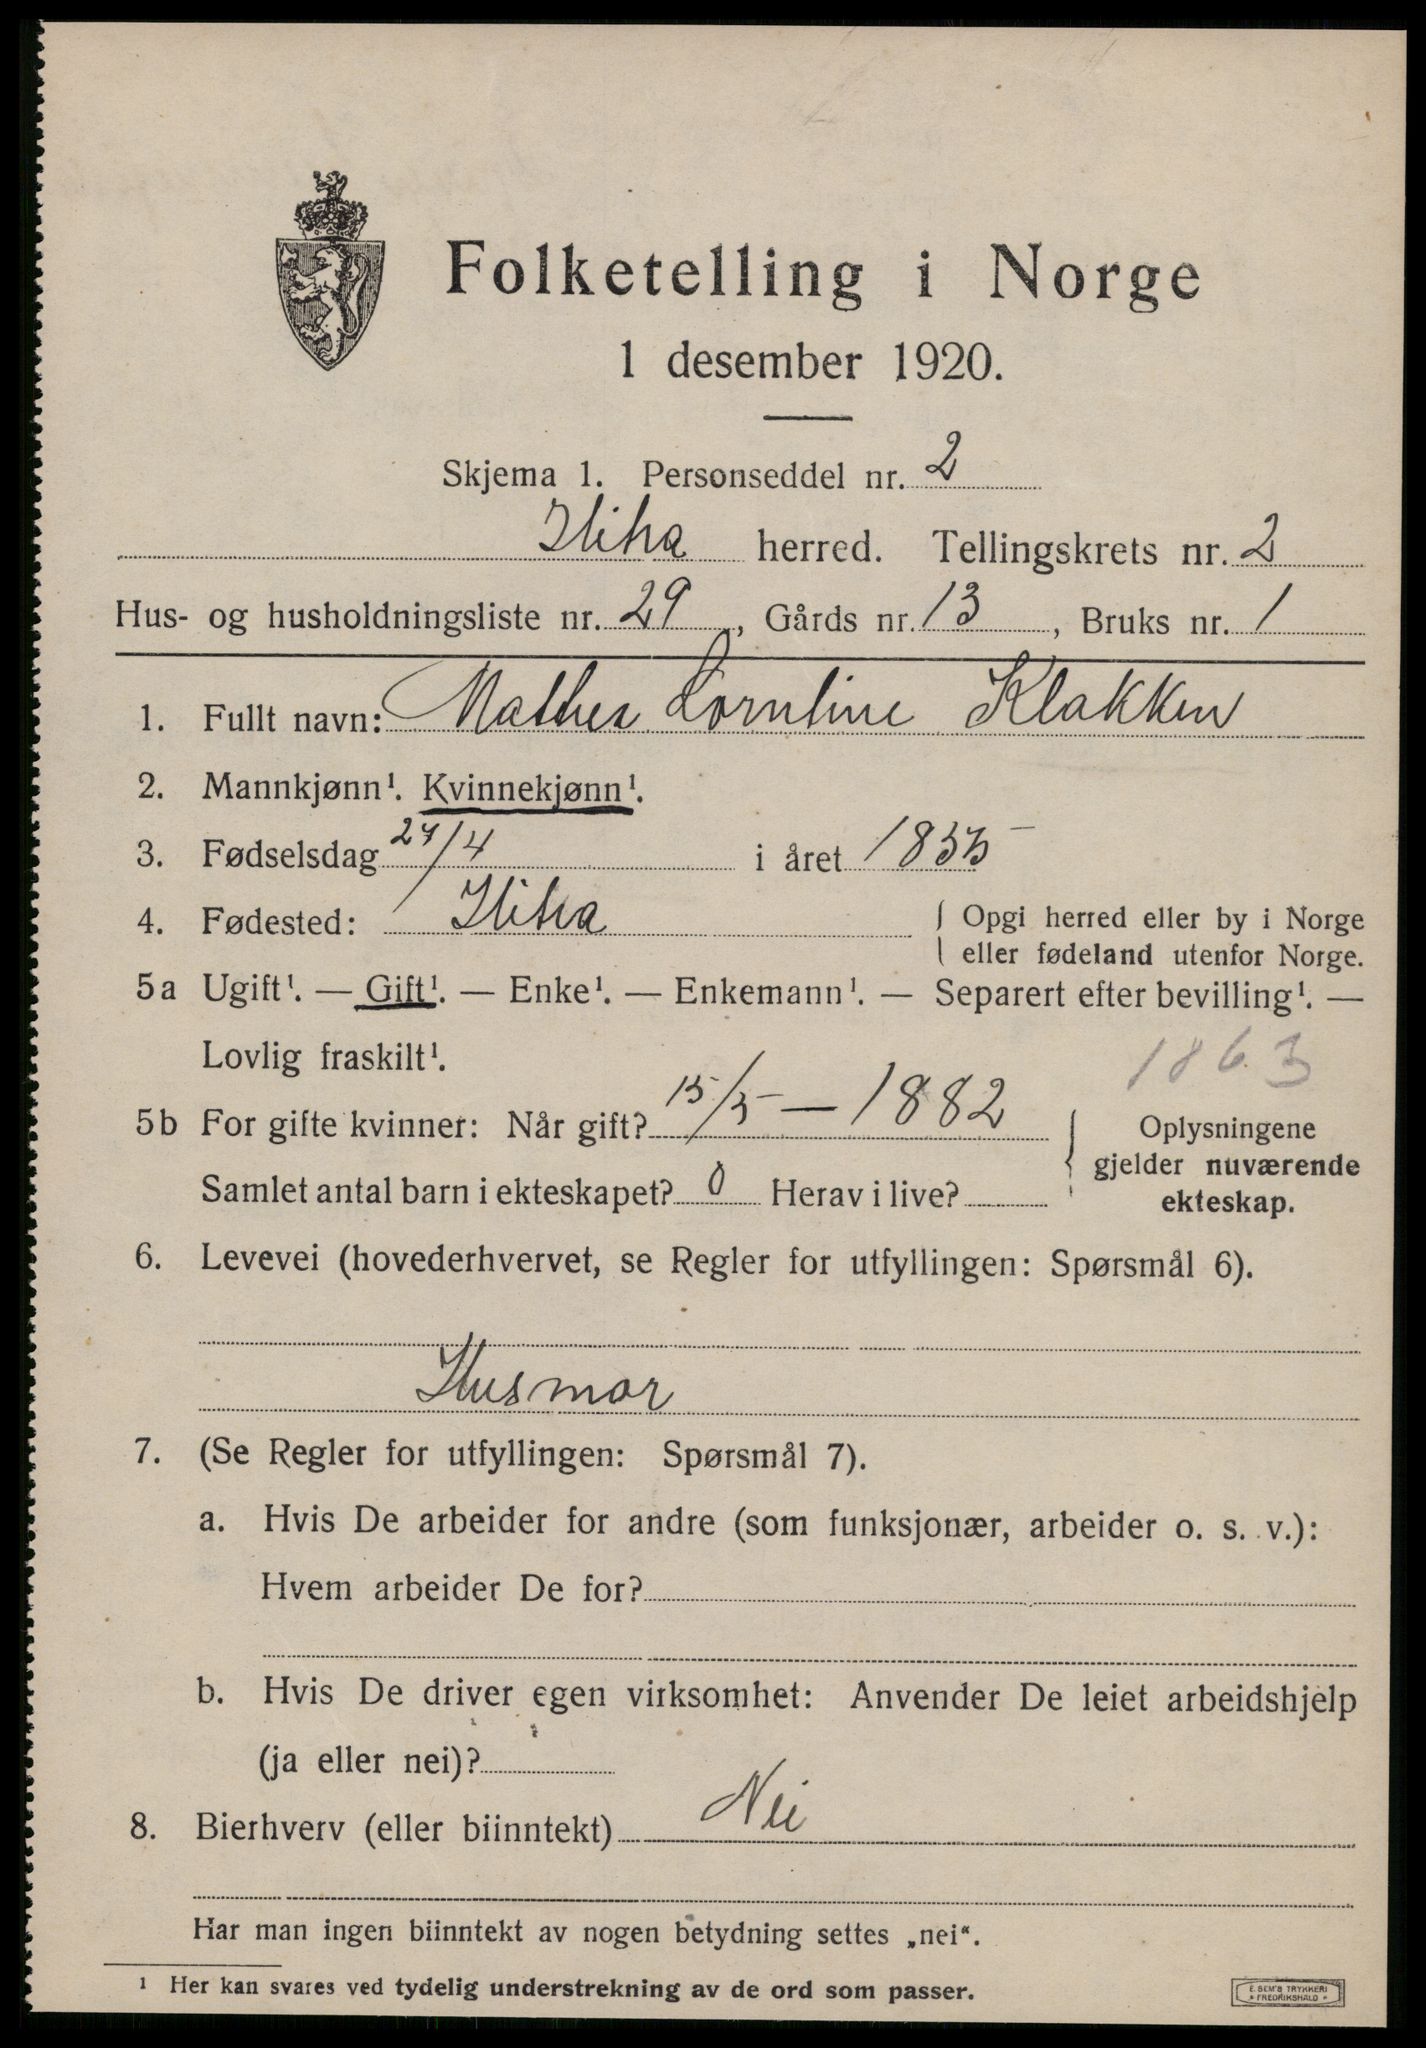 Folketelling i Norge
1 desember 1920.
Skjema 1. Personseddel nr. 2
Hitra herred. Tellingskrets nr. 2
Hus- og husholdningsliste nr. 29, Gårds nr. 13, Bruks nr. 1
1. Fullt navn: Klakken
2. Mannkjønn¹. Kvinnekjønn¹.
3. Fødselsdag 27/4 i året 1855
4. Fødested: Hitra { Opgi herred eller by i Norge
eller fødeland utenfor Norge.
5a Ugift¹. — Gift¹. — Enke¹. — Enkemann¹. — Separert efter bevilling¹. —
Lovlig fraskilt¹.
1863
5b For gifte kvinner: Når gift? 15/5 — 1882 { Oplysningene
gjelder nuværende
Samlet antal barn i ekteskapet? 0 Herav i live?
ekteskap.
6. Levevei (hovederhvervet, se Regler for utfyllingen: Spørsmål 6).
Husmor
7. (Se Regler for utfyllingen: Spørsmål 7).
a. Hvis De arbeider for andre (som funksjonær, arbeider o. s. v.):
Hvem arbeider De for?
b. Hvis De driver egen virksomhet: Anvender De leiet arbeidshjelp
(ja eller nei)?
8. Bierhverv (eller biinntekt) Nei
Har man ingen biinntekt av nogen betydning settes „nei“.
¹ Her kan svares ved tydelig understrekning av de ord som passer.
E. SEM'S TRYKKERI
FREDRIKSHALD